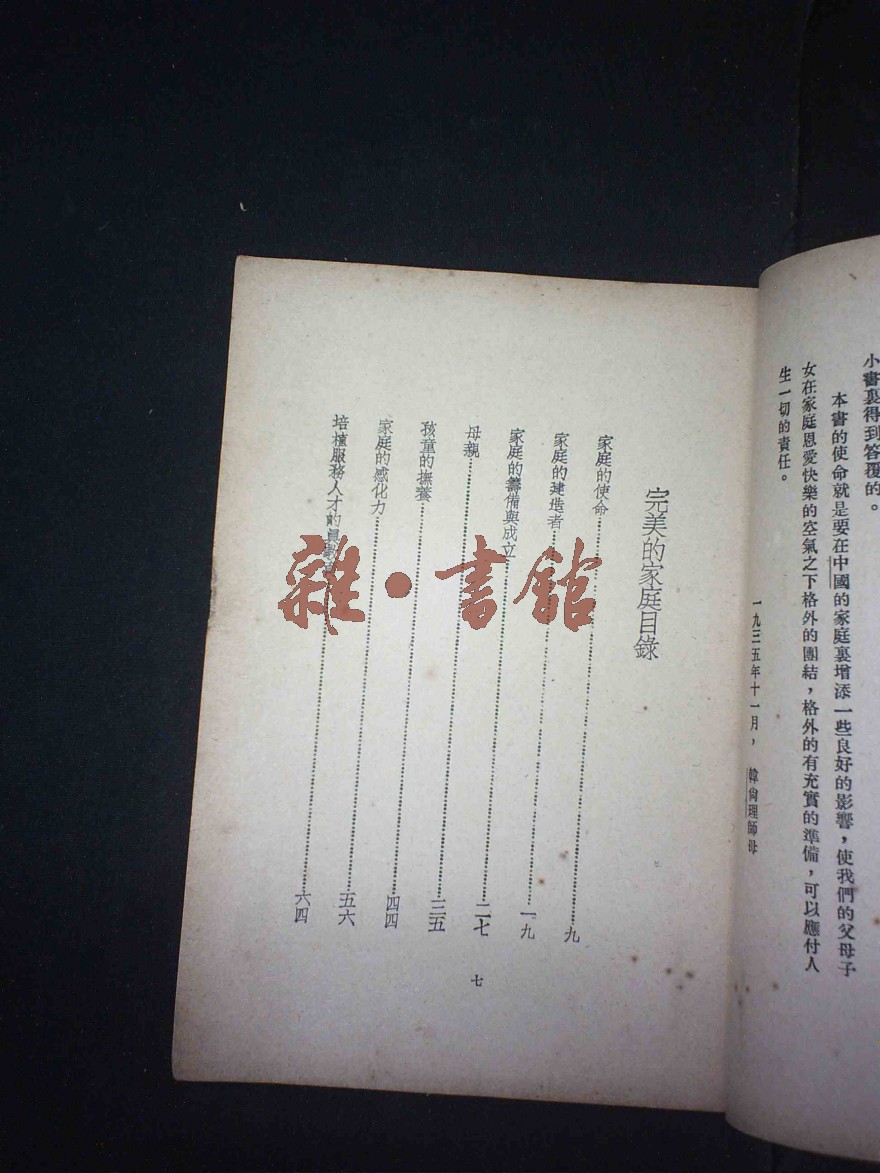 小書裏得到答覆的。
本書的使命就是要在中國的家庭裏增添一些良好的影響，使我們的父母子
女在家庭恩愛快樂的空氣之下格外的團結，格外的有充實的準備，可以應付人
生一切的責任。
一九三五年十一月， 韓尙理師母
完美的家庭目錄
家庭的使命……九
家庭的建造者……一九
家庭的籌備與成立……二七
母親……三五
孩童的撫養……四四
家庭的感化力……五六
培植服務人才的眞教育……六四
七
雜·書館